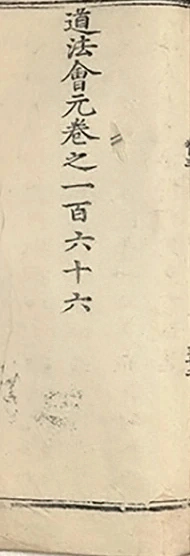 道法會元卷之一百六十六